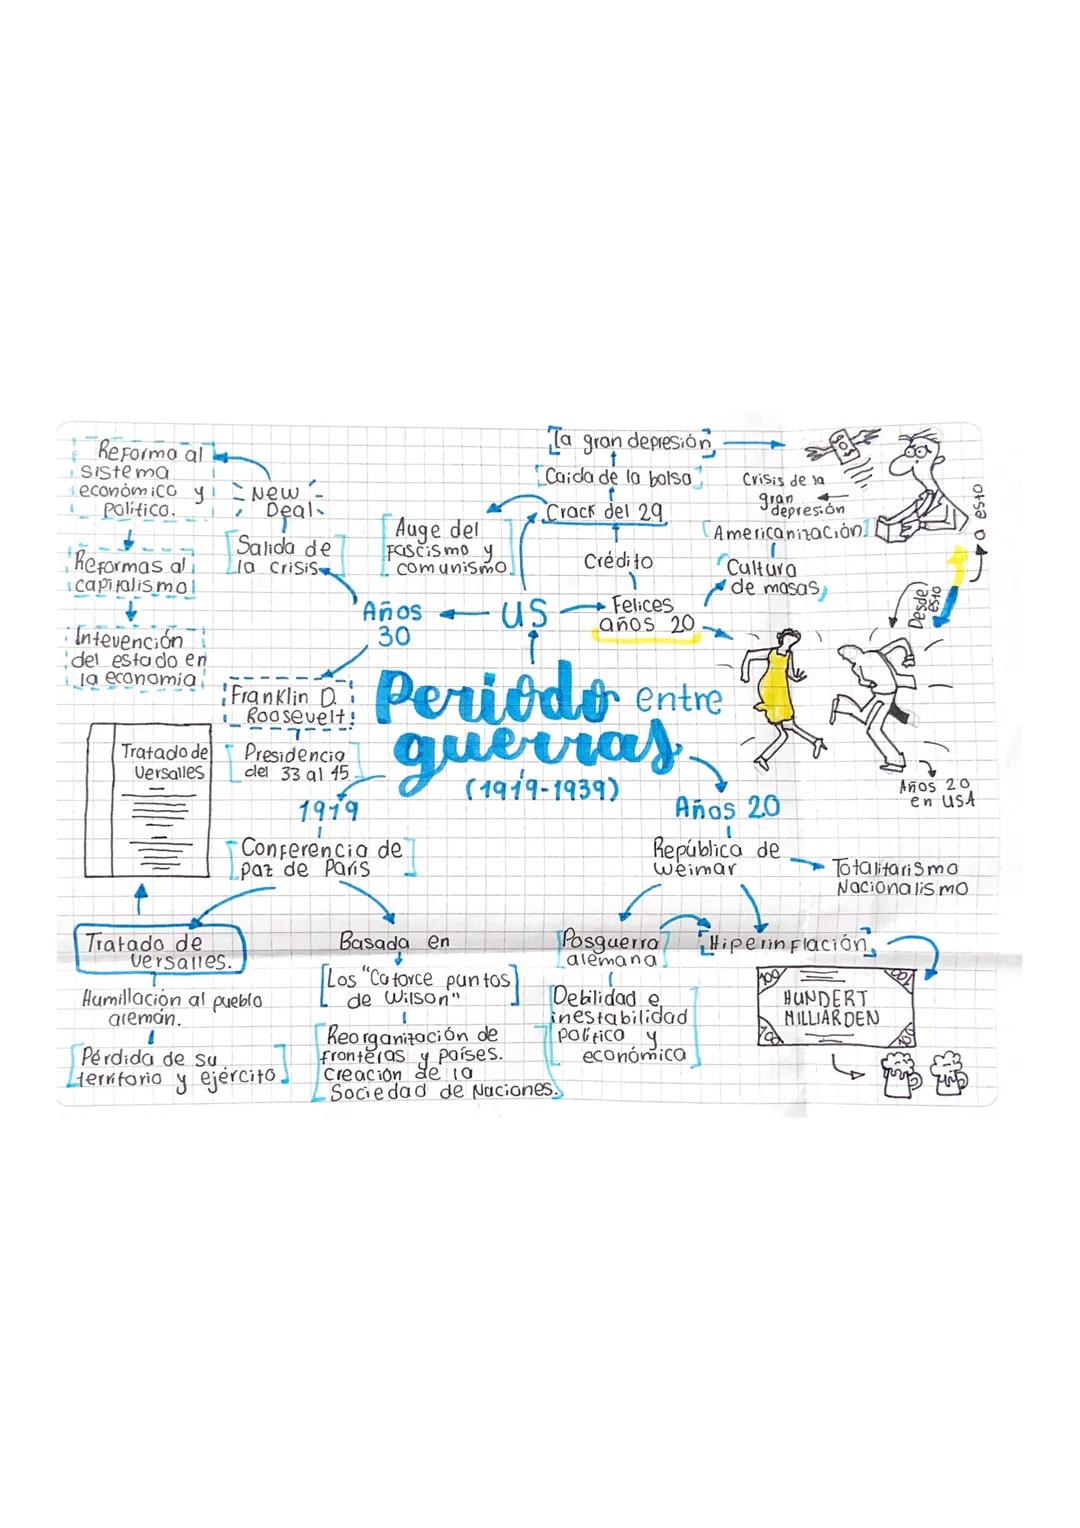 Reforma al
sistema
económico y
político.
New
Deal
Reformas al
capitalismo
Intevención
del estado en
la economía
Salida de
la crisis
Auge del
Fascismo y
comunismo
La gran depresión
Caida de la bolsa
Crack del 29
Crédito
Crisis de la
gran
depresión
Americanización
Cultura
de masas
Felices
años 20
US
Años
30
Desde
esto
a esto
Franklin D.
Roosevelt
Presidencia
del 33 al 45
Periodo entre
guerras
(1919-1939)
Años 20
en USA
Tratado de
Versalles
1919
Conferencia de
paz de París
Años 20
República de
Weimar
Totalitarismo
Nacionalismo
Tratado de
Versalles.
Humillación al pueblo
alemán.
Pérdida de su
territorio y ejército
Basada en
Los "Catorce puntos
de Wilson"
Reorganización de
fronteras y países.
Creación de la
Sociedad de Naciones.
Posguerra
alemana
Debilidad e
inestabilidad
política y
económica
Hiperinflación
100
100
HUNDERT
MILLIARDEN
100
100